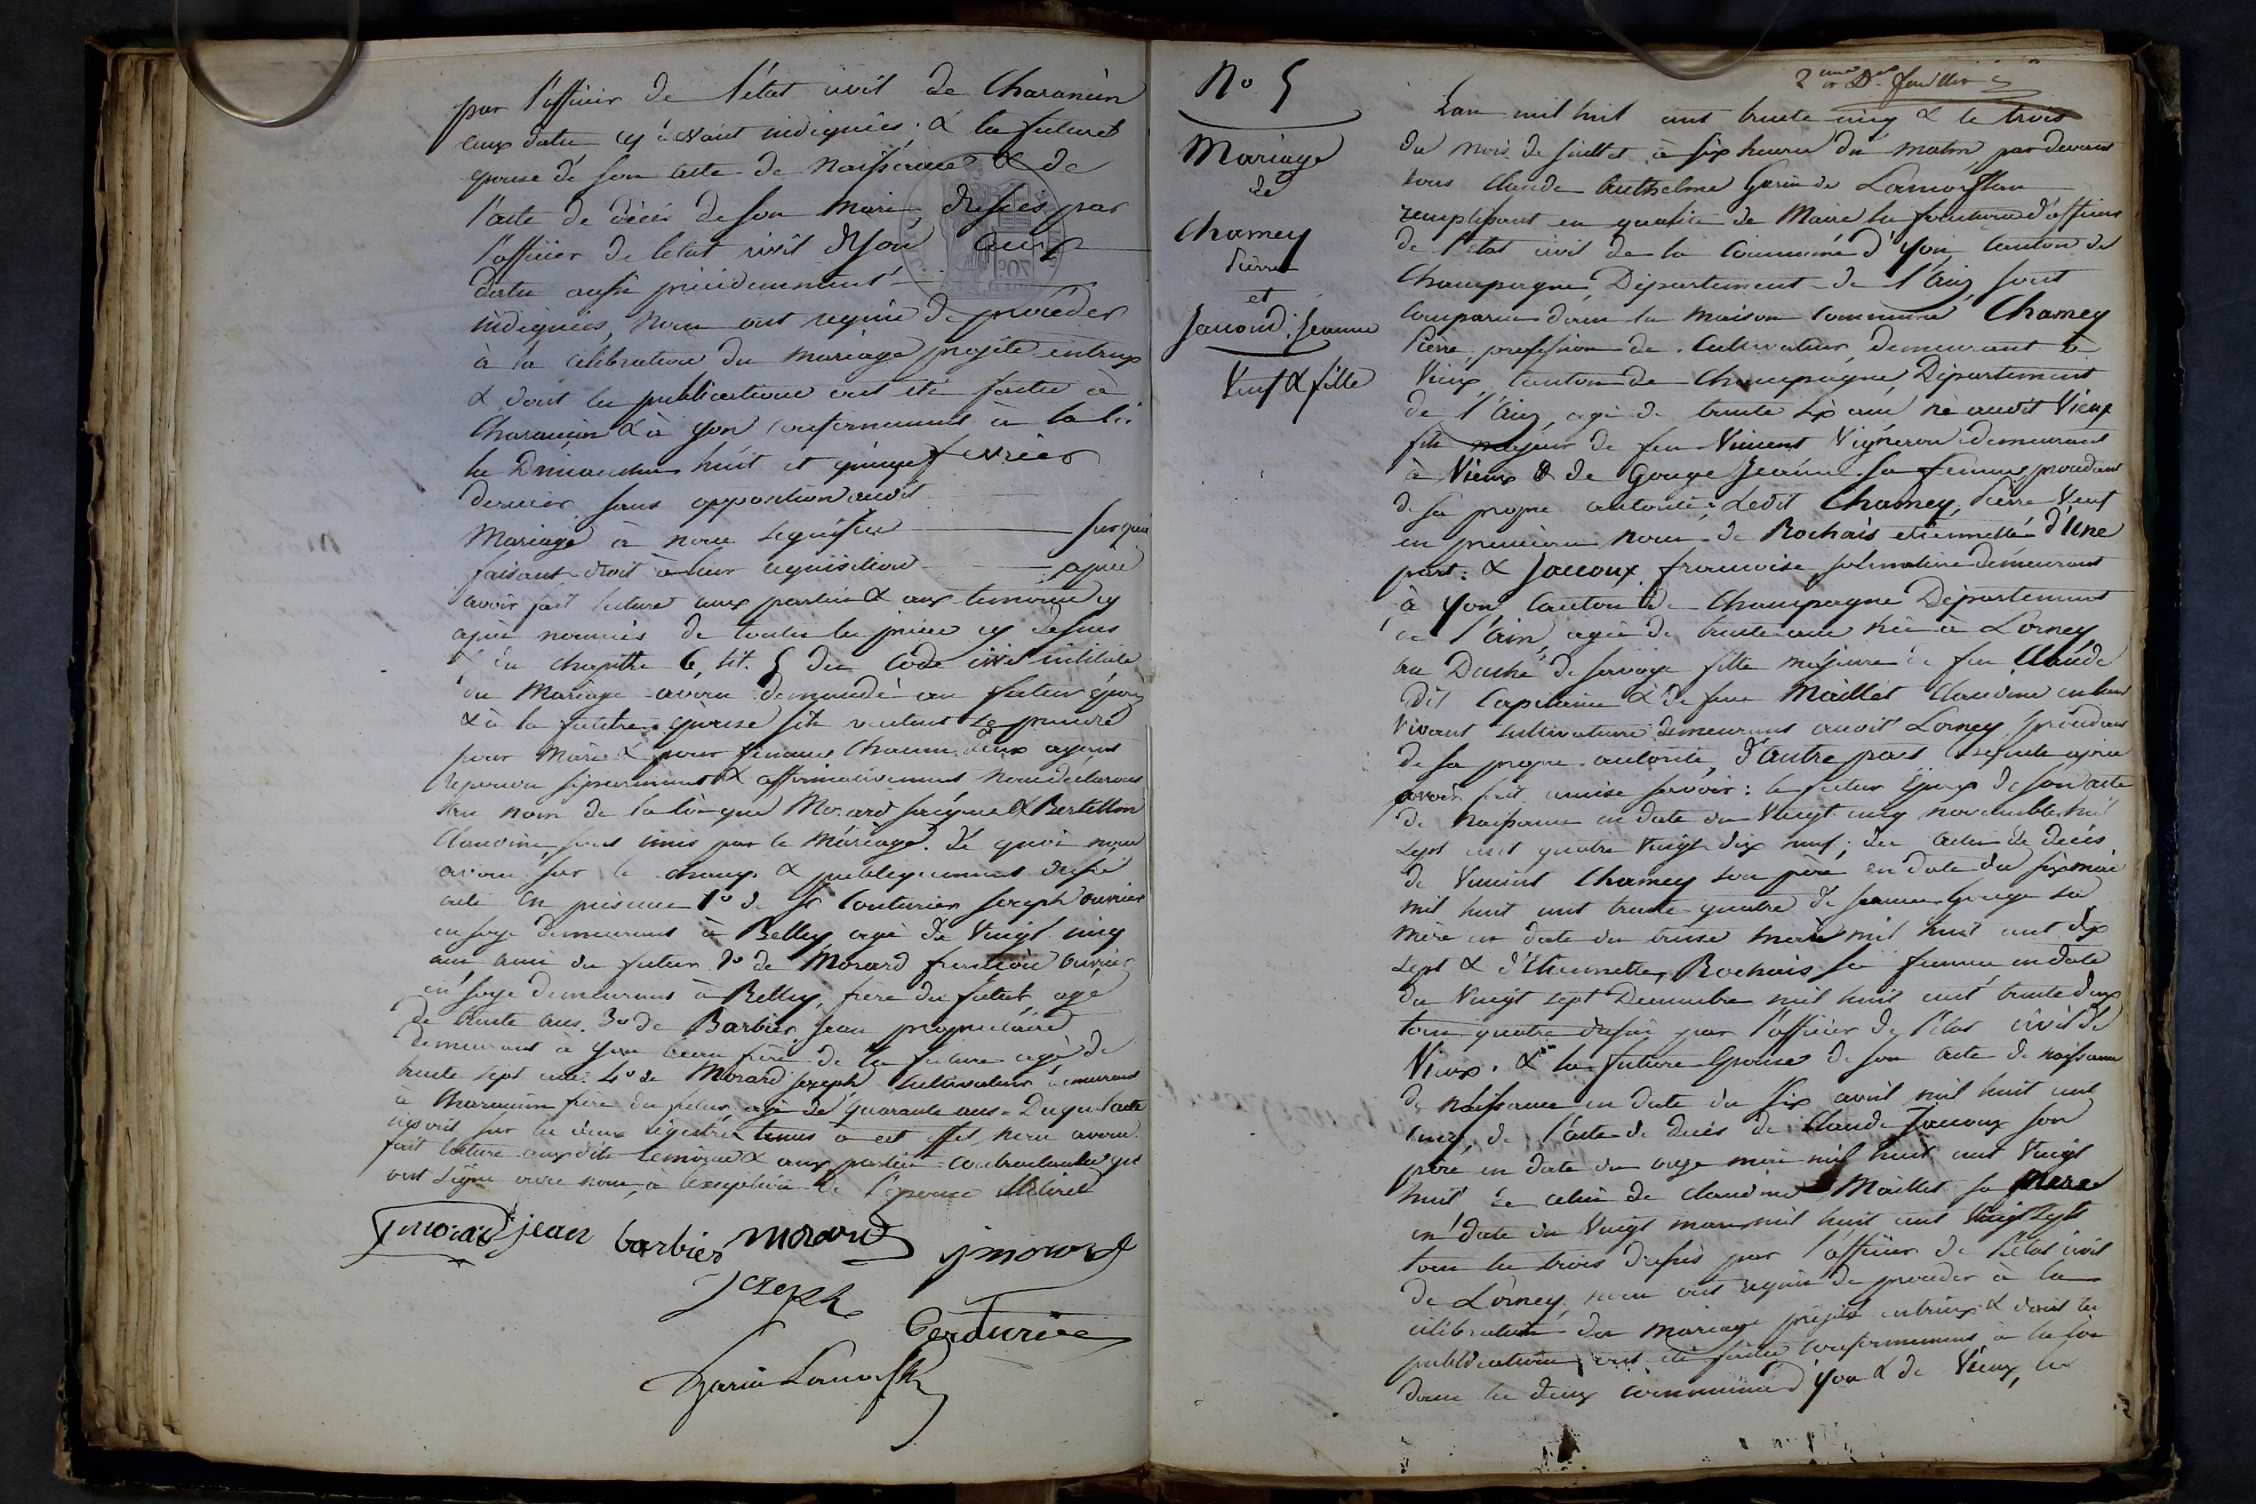 par l'officier de l'état civil de Charancin
aux dates cy devant indiquées; & la future
épouse de son acte de naissance & de
l'acte de décès de son mari, dressés par
l'officier de l'état civil d'yon aux
dates aussi précédemment
indiquées, nous ont requis de procéder
à la célébration du mariage projeté entreux
& dont les publications ont été faites à
Charancin & à yon conformément à la loi
les Dimanches huit et quinze fevrier
dernier sans opposition audit
Mariage à nous signifiée sur quoi
faisant droit à leur réquisition après
avoir fait lecture aux parties & aux temoins cy
après nommés de toutes les pièces cy dessus
& du chapitre 6, tit. 5 du Code civil intitulé
du Mariage avons demandé au futur époux
& à la future épouse s'ils veulent se prendre
pour Mari & pour femme chacun d'eux ayant
répondu séparément & affirmativement nous déclarons
au nom de la loi que Morard & Bertillon
Claudine sont unis par le Mariage. De quoi nous
avons sur le champ & publiquement dressé
acte en présence 1º de Sr Couturier Joseph ouvrier
en soye demeurant à Belley agé de Vingt cinq
ans ami du futur 2º de Morard ouvrier
en soye demeurant à Belley, frère du futur agé
de trente ans. 3º de Barbier Jean propriétaire
demeurant à yon beau frère de la future agé de
trente sept ans. 4º de Morard Joseph cultivateur demeurant
à Charancin frère du futur agé de quarante ans. Duquel acte
inscrit sur les deux régistres tenus à cet effet nous avons
fait lecture auxdits temoins & aux parties contractantes qui
ont signé avec nous, à l'exception de l'épouse illitéré
jmorard jean barbier morard jmorard
jozeph
Couturier
Garin Lamorflan
No 5
Mariage
de
Chamey
Pierre
et
Jaccoud Jeanne
Veuf & fille
2 me & D. feuillet
L'an mil huit cent trente cinq & le trois
du mois de juillet à six heures du matin, par devant
nous Claude Anthelme Garin de Lamorflan
remplissant en qualité de Maire les fonctions d'officier
de l'état civil de la Commune d'yon, Canton de
Champagne, Département de l'ain, sont
comparus dans la maison commune Chamey
Pierre, profession de cultivateur, demeurant à
Vieux, canton de Champagne, Département
de l'ain, agé de trente six ans né audit Vieux
fils majeur de feu Vincent Vigneron demeurant
à Vieux & de Gouge Jeanne sa femme, procédant
de sa propre autorité, Ledit Chamey, Pierre Veuf
en premières noces de Rochais etiennette d'Une
part: & Jaccoux francoise, demeurant
à yon, canton de Champagne Département
de l'ain, agée de trente ans née à Lorney
au Duché de savoye fille majeure de feu Claude
dit Capitaine & de feue Maillet Claudine en leur
Vivant cultivateurs demeurant audit Lorney procédant
de sa propre autorité, d'autre part Lesquels après
avoir fait remise savoir: le futur Epoux de son acte
de naissance en date du Vingt cinq novembre mil
sept cent quatre vingt dix neuf; des actes de décès
de Vincent Chamey son père en date du six mai
mil huit cent trente quatre de Jeanne Gouge sa
mère en date du treize mars mil huit cent dix
sept & d'Etiennette Rochais sa femme en date
du Vingt sept Décembre mil huit cent trente deux
tous quatre dressés par l'officier de l'état civil de
Vieux. & la future Epouse de son acte de naissance
de naissance en date du six avril mil huit cent
cinq, de l'acte de décès de Claude Jaccoux son
père en date du onze mai mil huit cent Vingt
huit de celui de Claudine Maillet sa Mere
en date du Vingt mars mil huit cent Vingt sept
tous les trois dressés par l'officier de l'état civil
de Lorney, nous ont requis de procéder à la
célébration du mariage projeté entreux & dont les
publications ont été faites conformément à la loi
dans les deux communes d'yon & de Vieux, les